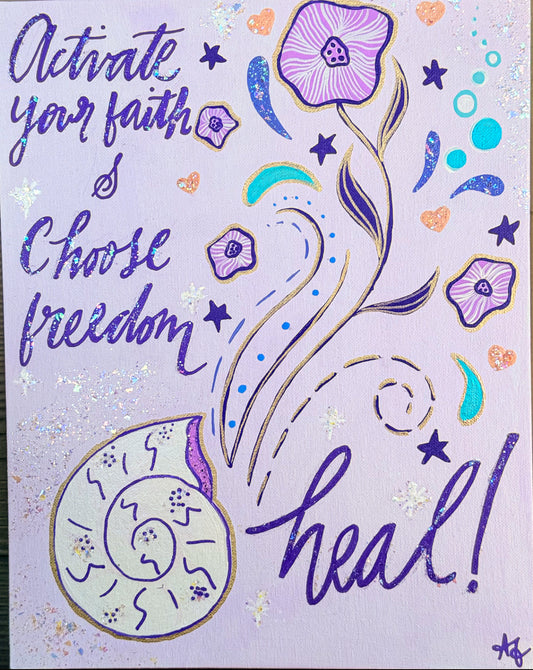 Activate
your faith
&
Choose
freedom
heal!